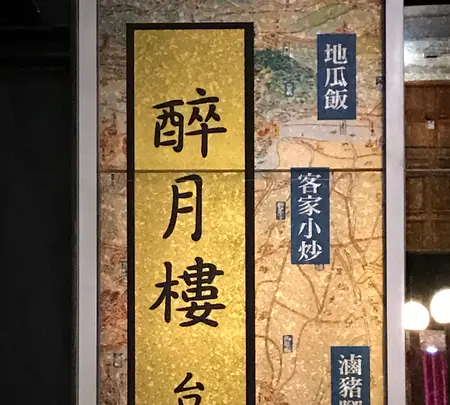 醉月樓
地瓜飯
客家小炒
滷豬